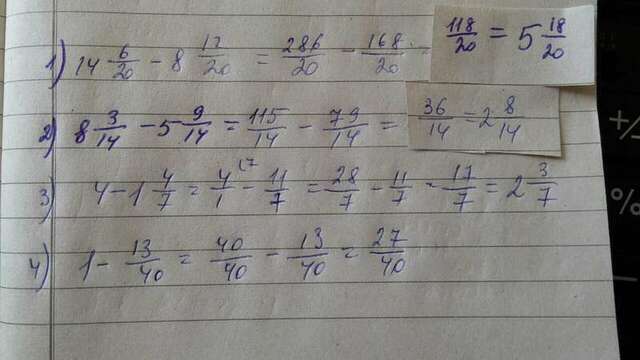 1) 14 6/20 - 8 17/20 = 286/20 - 168/20 - 118/20 = 5 18/20
2) 8 3/14 - 5 9/14 = 115/14 - 79/14 = 36/14 = 2 8/14
3) 4 - 1 4/7 = 4/1 (7 - 11/7 = 28/7 - 11/7 - 17/7 = 2 3/7
4) 1 - 13/40 = 40/40 - 13/40 = 27/40
+/-
%